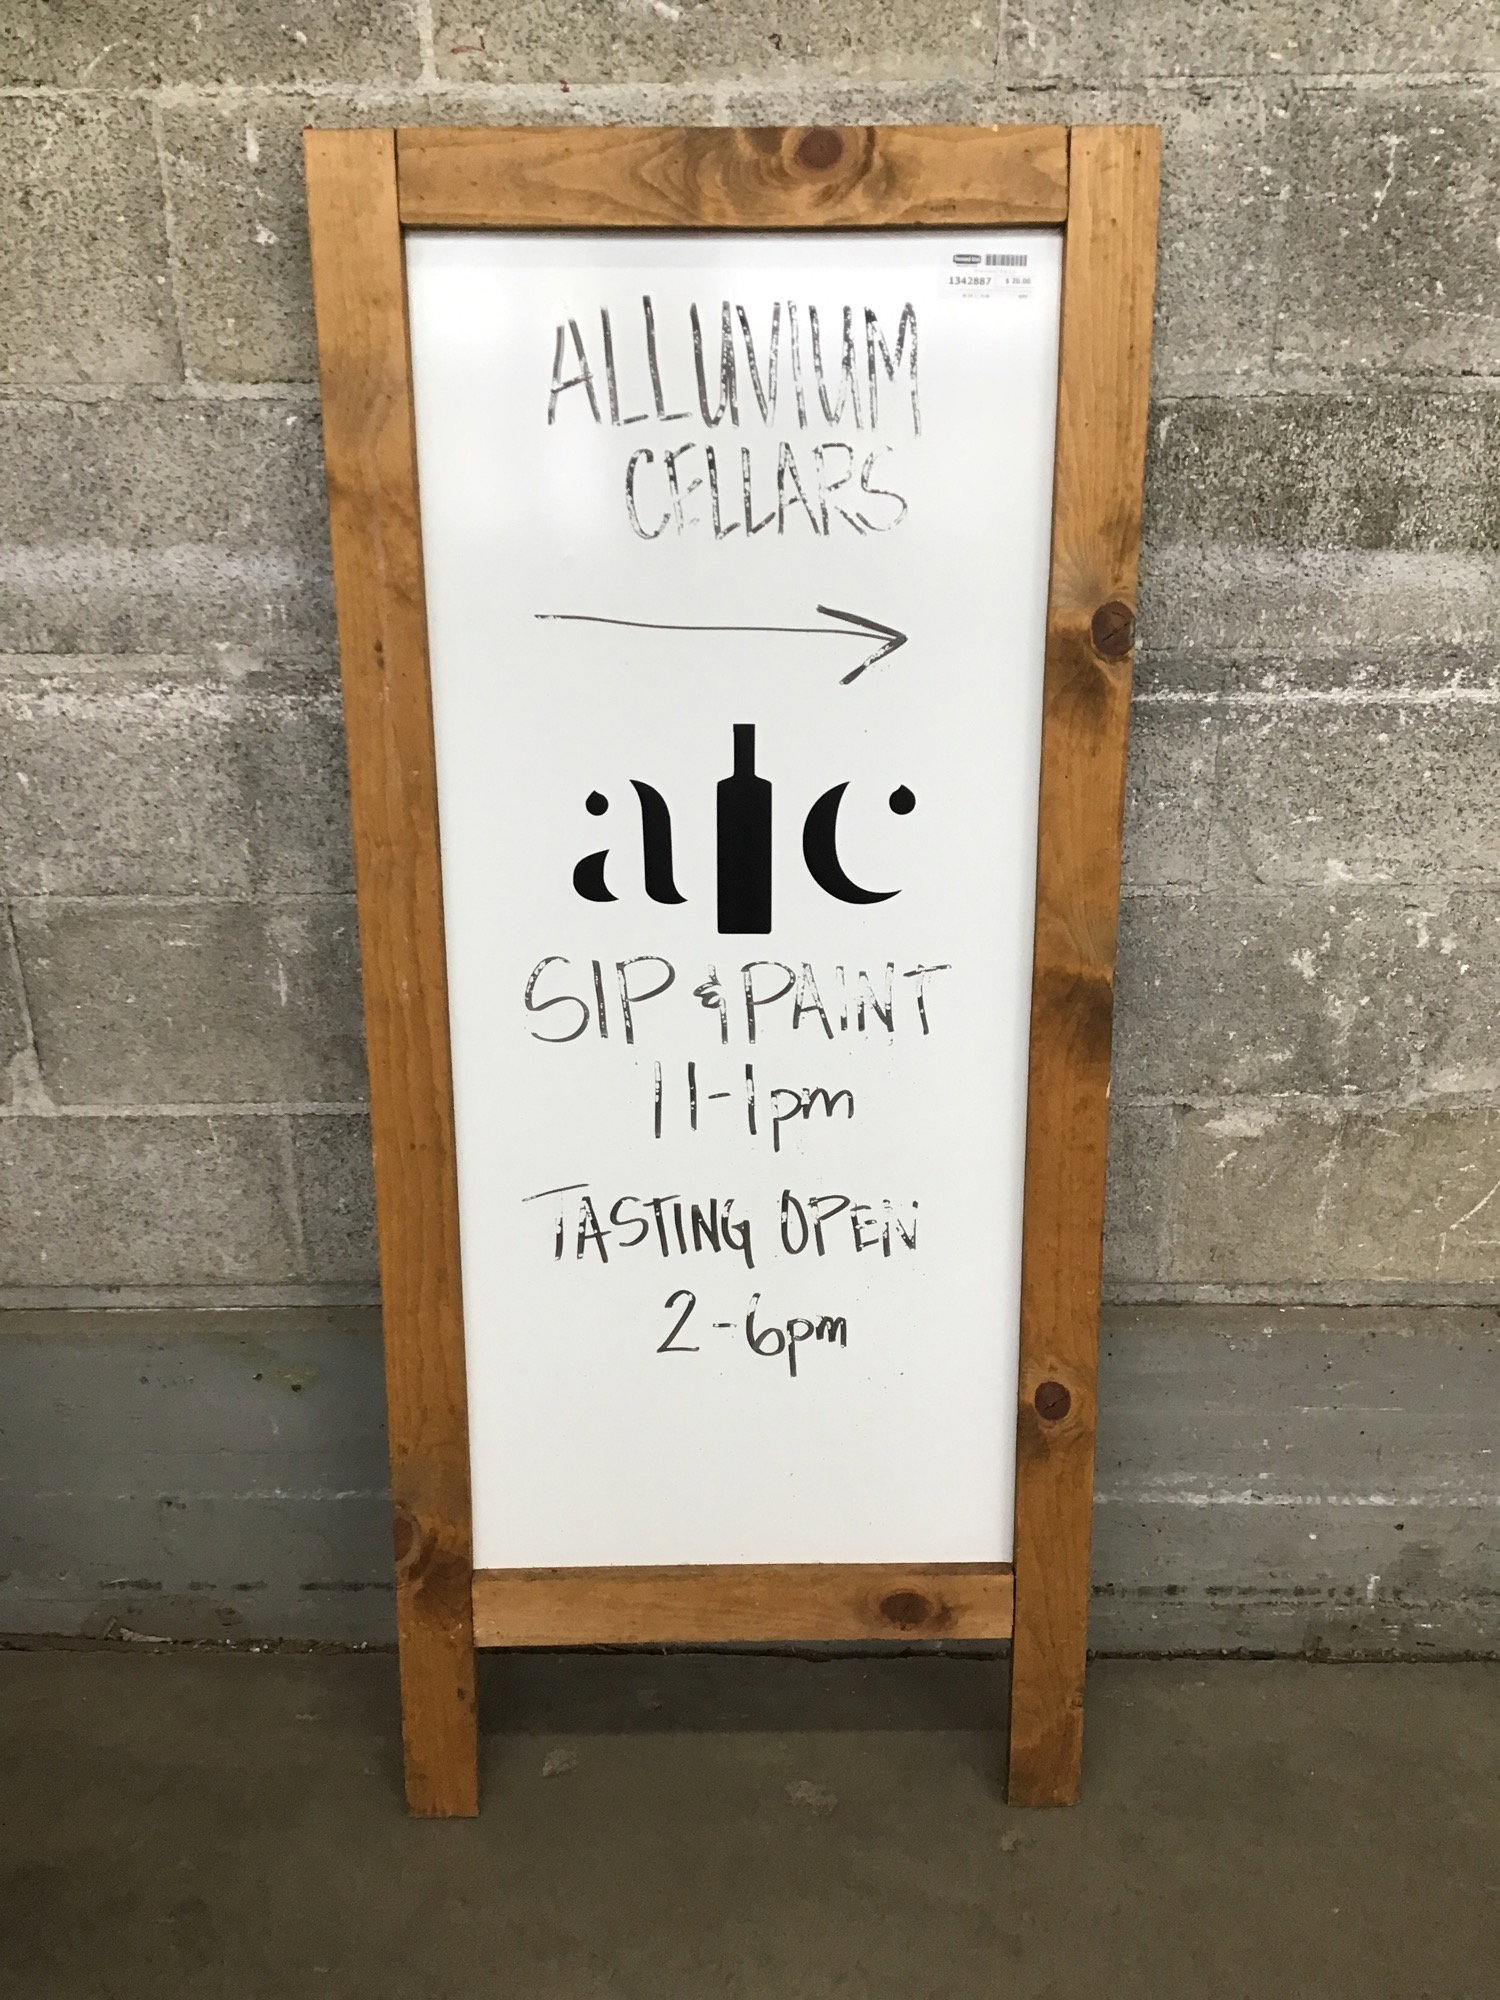 1342887 $ 20.00
ALLUVIUM
CELLARS
a c
SIP & PAINT
11-1pm
TASTING OPEN
2-6pm